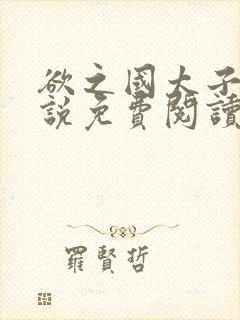 欲之國大子
說免費閱讀
羅賢哲